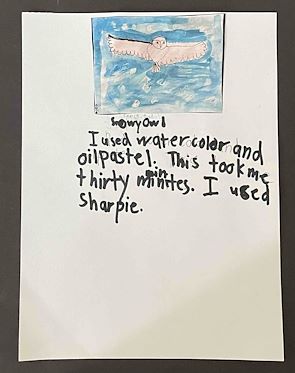 Snowy Owl
I used watercolor and
oilpastel. This took me
thirty mintes. I used
Sharpie.